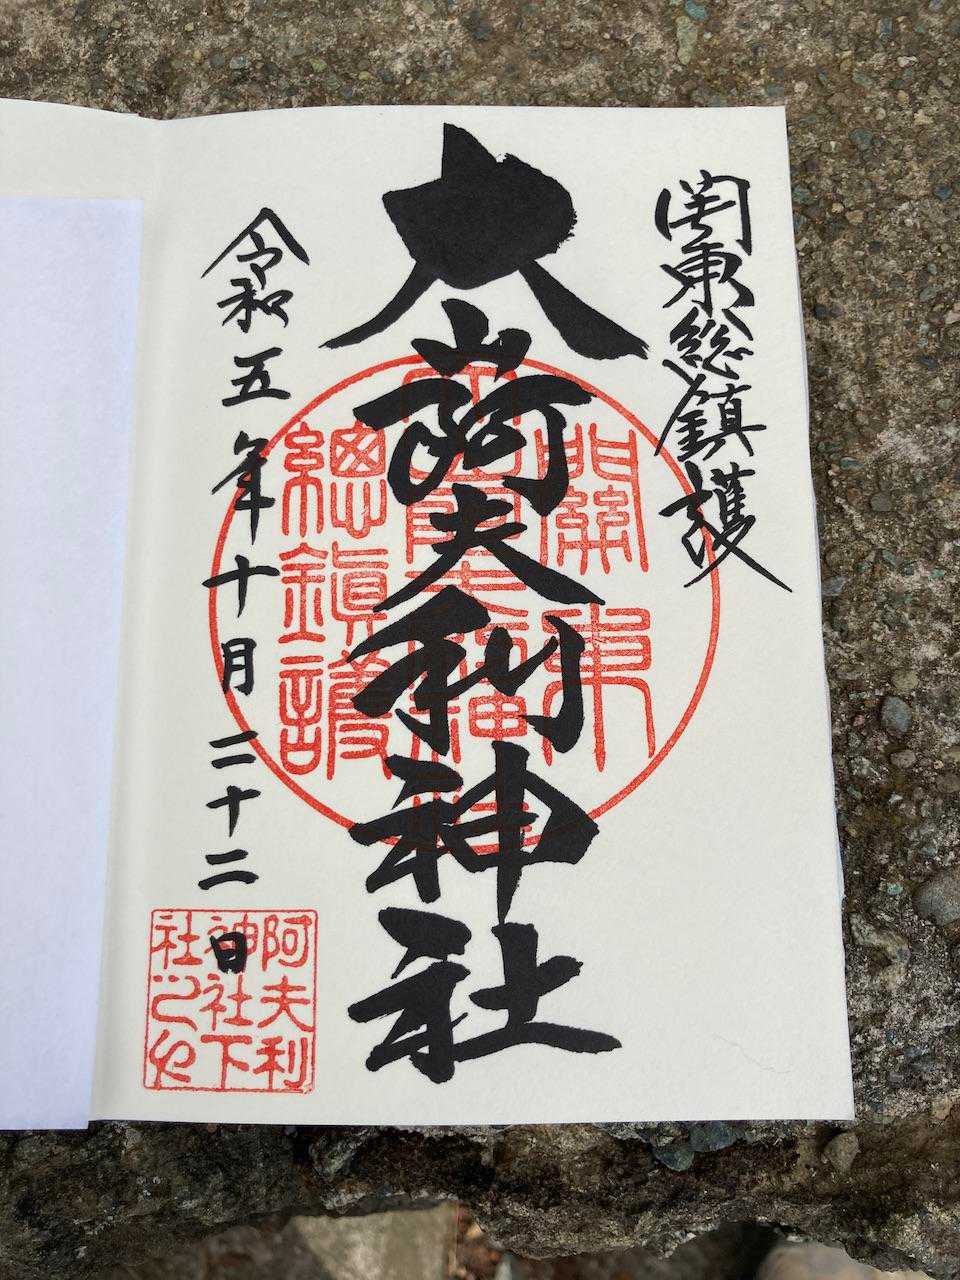 関東総鎮護
大山阿夫利神社
令和五年十月二十二日
關東
總鎭護
阿夫利
神社下
社之也